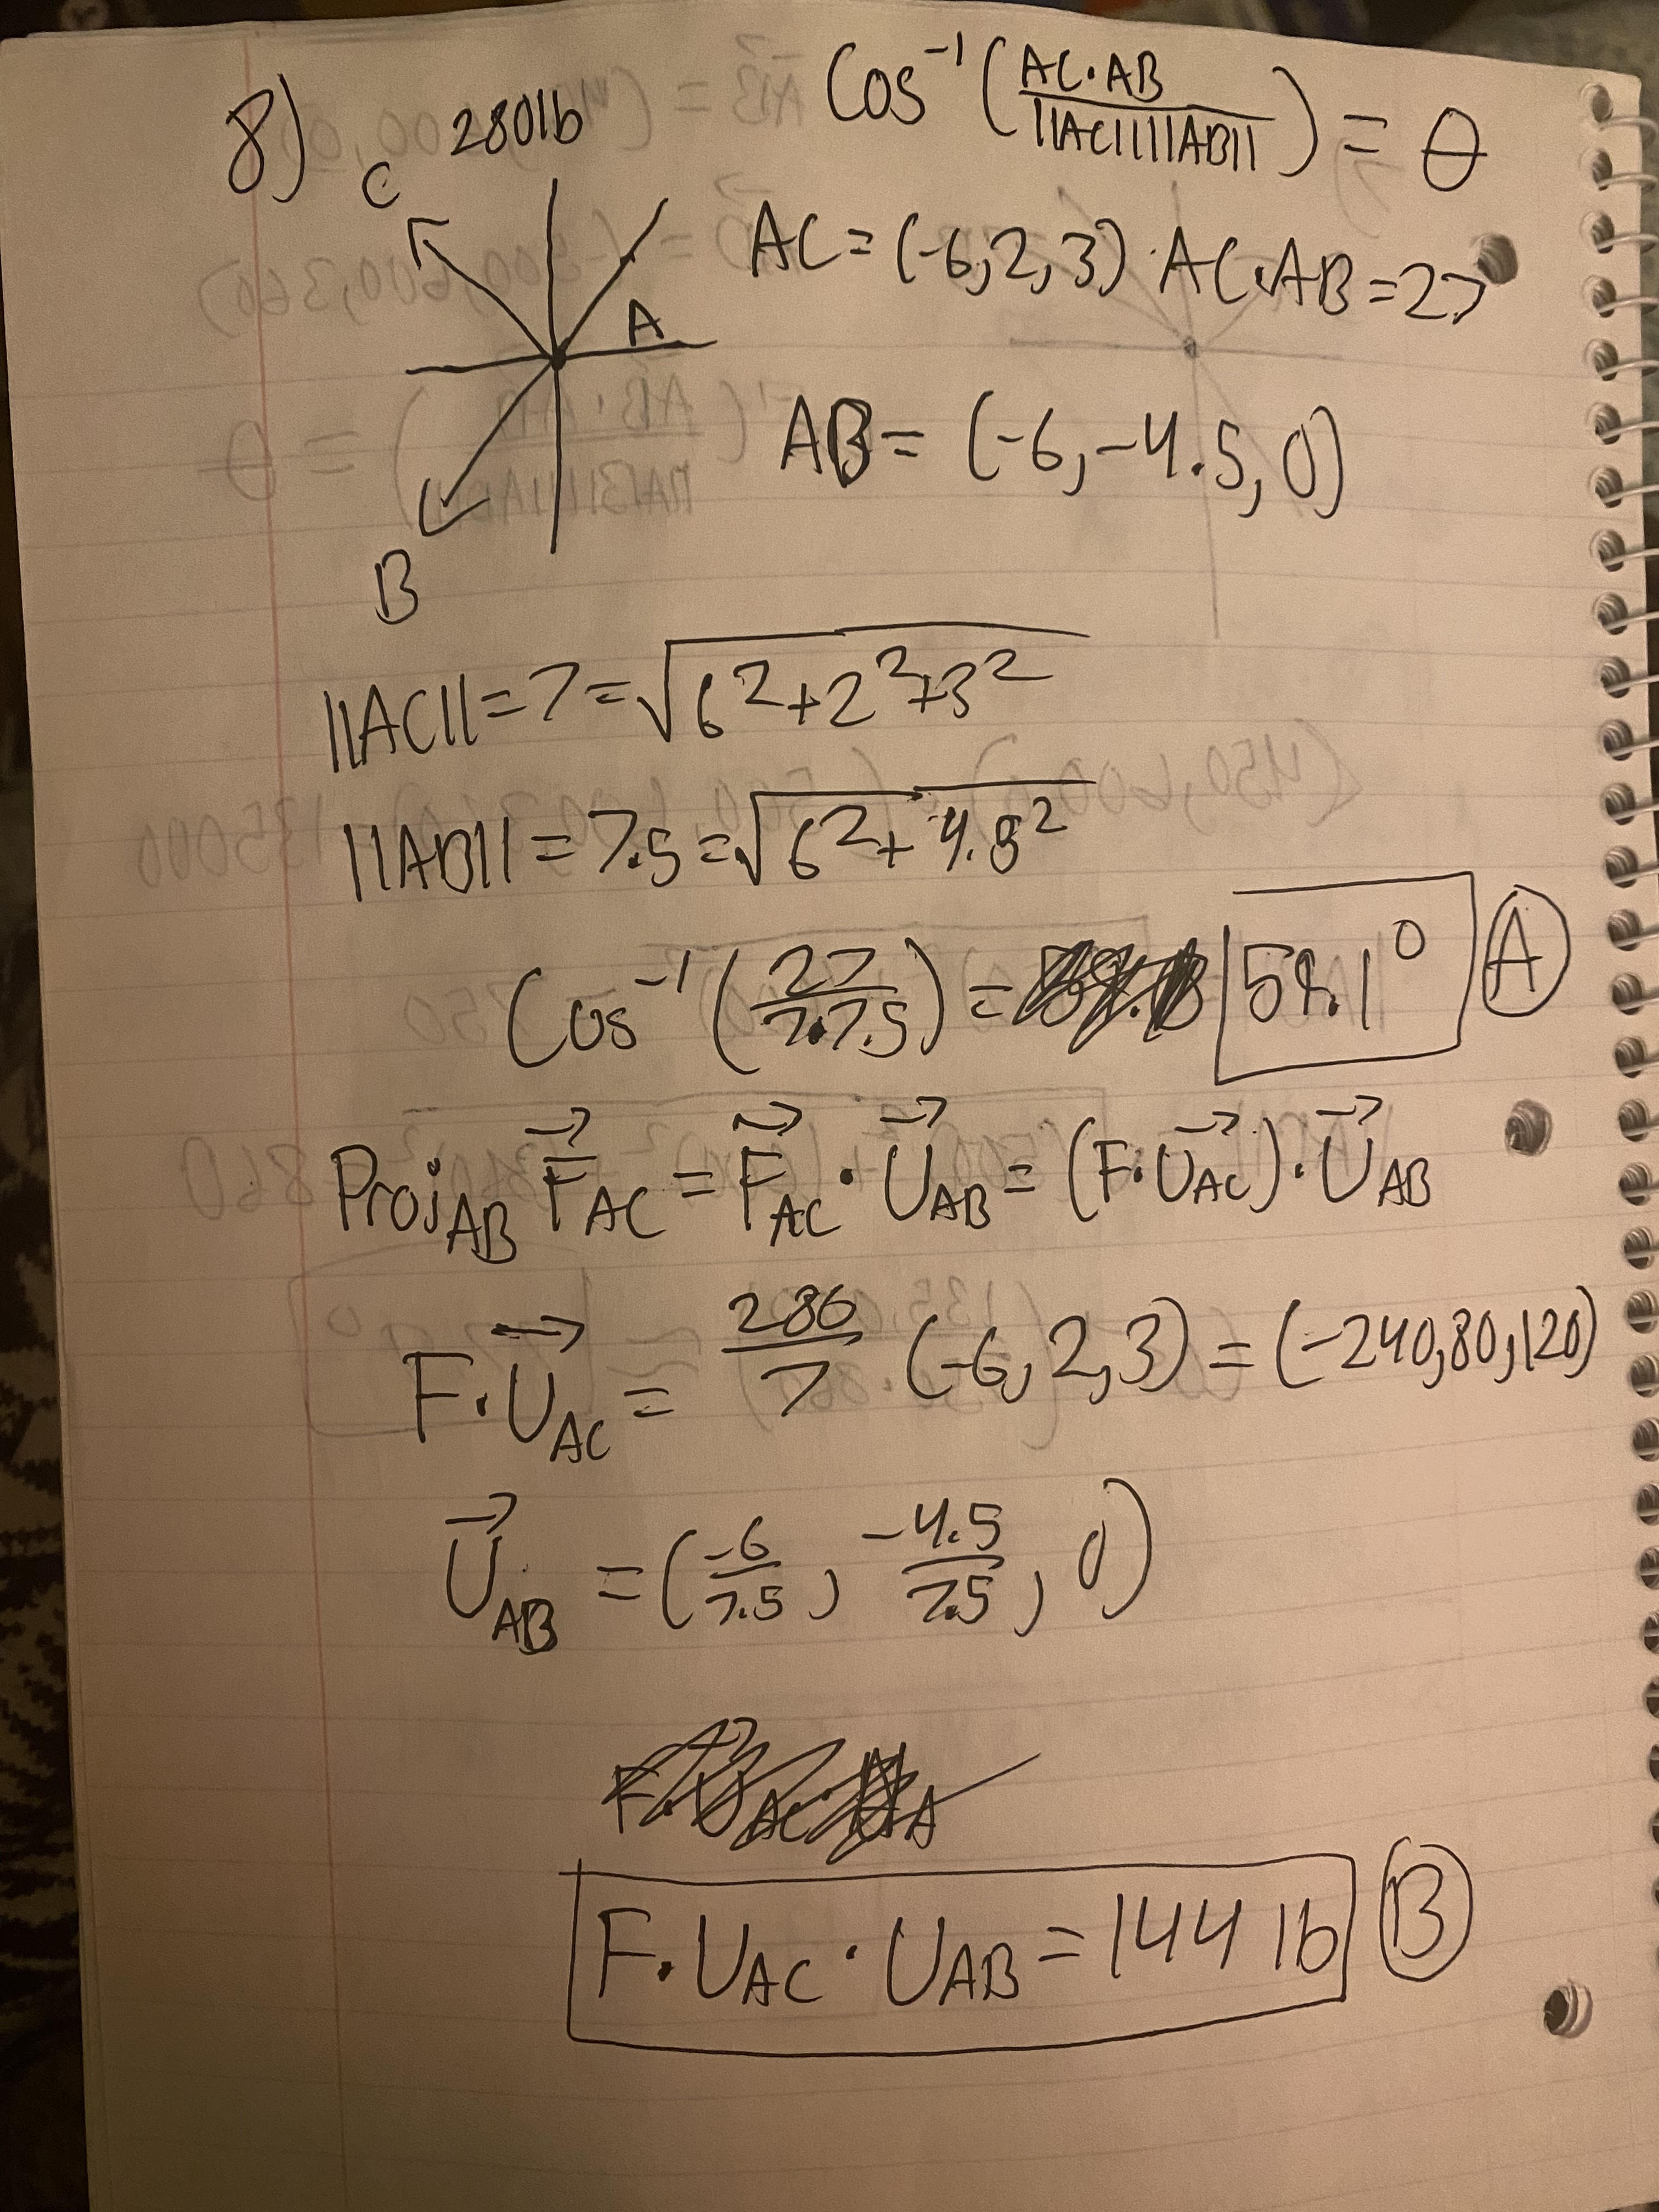 8) 280lb Cos⁻¹(AC·AB/||AC||||AB||) = θ
C
A
AC=(-6,2,3) AC·AB=27
AB= (-6,-4.5,0)
B
||AC||=7=√6²+2²+3²
||AB||=7.5=√6²+4.5²
Cos⁻¹(27/7·7.5)= 59.1° A
Proj_AB F⃗_AC = F⃗_AC · U⃗_AB = (F·U⃗_AC)·U⃗_AB
F·U⃗_AC = 280/7 (-6,2,3)=(-240,80,120)
U⃗_AB =(-6/7.5, -4.5/7.5, 0)
F·U_AC·U_AB=144 lb B